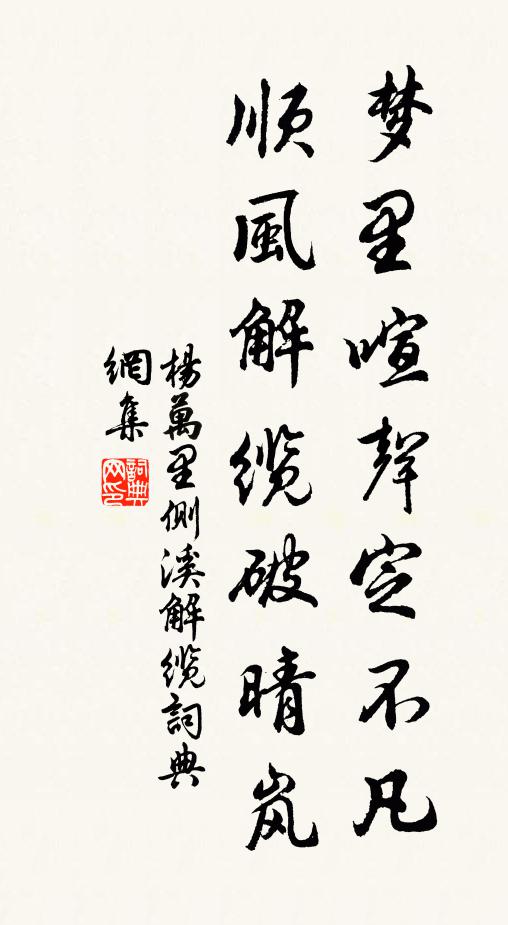 梦里喧聲定不凡
順風解缆破晴岚
楊萬里側溪解缆詞典
網集
詞典
网印